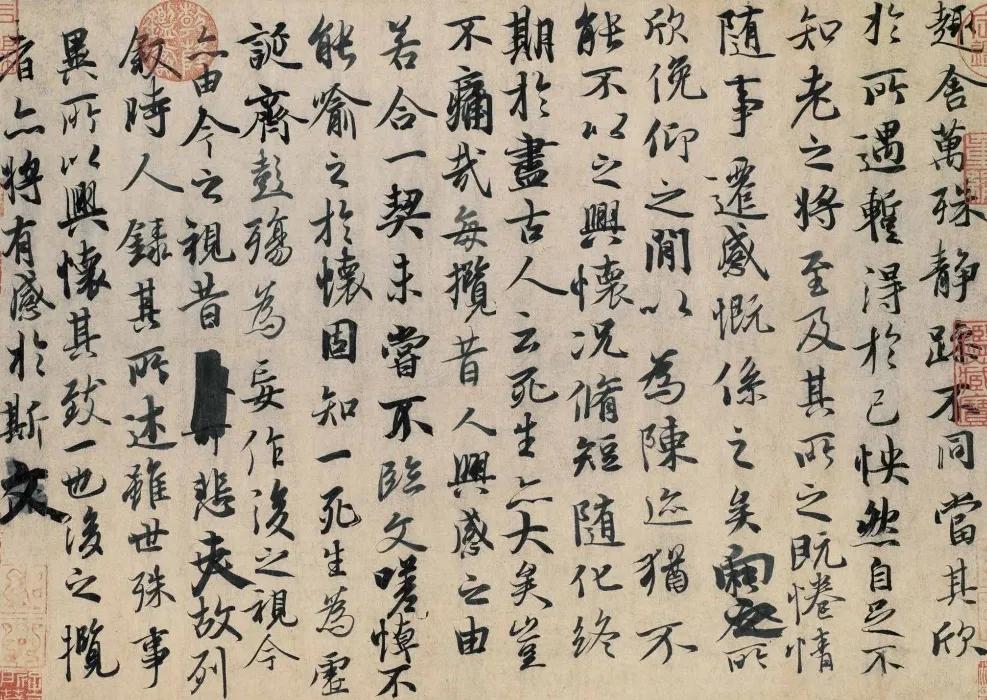 趣舍萬殊静躁不同當其欣
於所遇蹔得於己怏然自足不
知老之將至及其所之既惓情
随事遷感慨係之矣向之所
欣俛仰之閒以為陳迹猶不
能不以之興懷况脩短随化終
期於盡古人云死生亦大矣豈
不痛哉每攬昔人興感之由
若合一契未嘗不臨文嗟悼不
能喻之於懷固知一死生為虛
誕齊彭殤為妄作後之視今
亦由今之視昔悲夫故列
叙時人録其所述雖世殊事
異所以興懷其致一也後之攬
者亦將有感於斯文